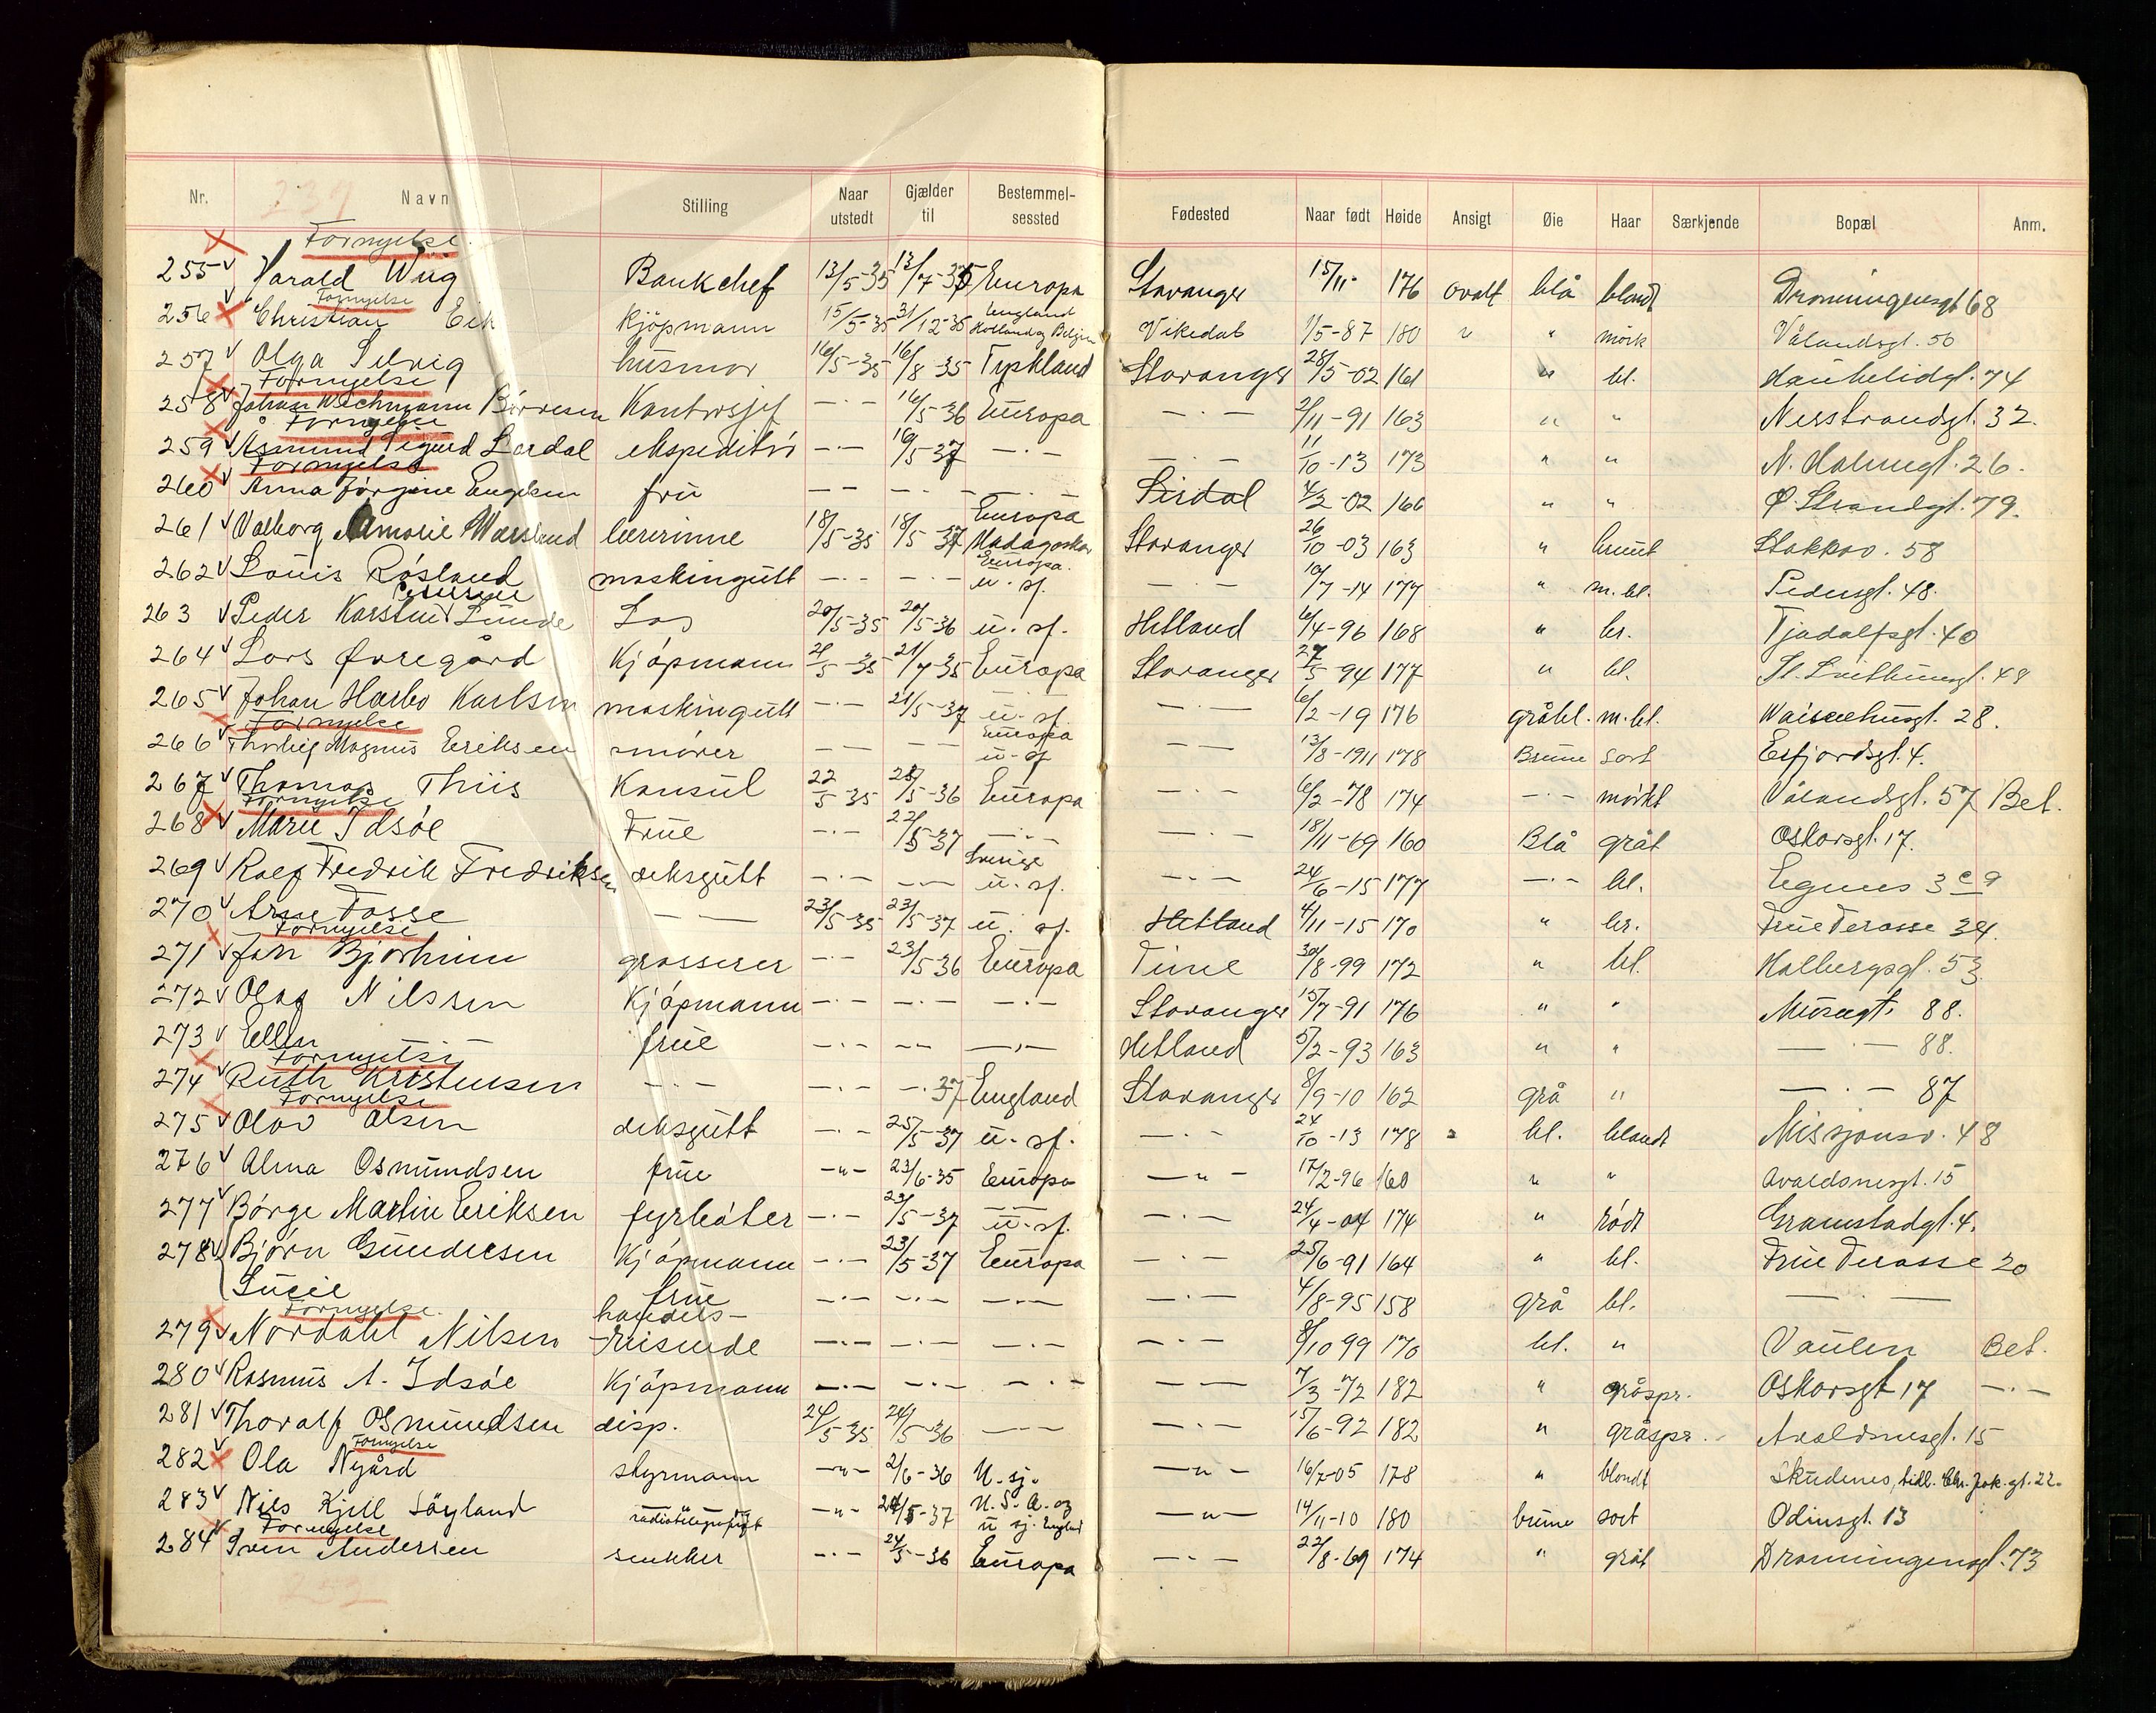 Nr. Navn Stilling Naar utstedt Gjælder til Bestemmelsessted Fødested Naar født Høide Ansigt Øie Haar Særkjende Bopæl Anm.
Fornyelse.
255 Harald Wiig Bankchef 13/5-35 Europa Stavanger 15/11- 176 ovalt blå blondt Dronningensgt 68
Fornyelse England
256 Christian Eik Kjöpmann 15/5-35 31/12-35 Holland og Belgien Vikedal 1/5-87 180 " mörk Vålandsgt. 56
257 Olga Selvig husmor 16/5-35 16/8-35 Tyskland Stavanger 28/5-02 161 " bl. Haukeligt. 74
Fornyelse
258 Johan Wechmann Börresen Kontorsjef -·- 16/5-36 Europa -·- 2/11-91 163 " " Nesstrandgt. 32.
Fornyelse
259 Åsmund Sigurd Lardal ekspeditör -·- 16/5-37 -·- -·- 11/10-13 173 " " N. Holmegt. 26.
Fornyelse
260 Anna Jörgine Engelsen fru -- -·- -·- Sirdal 4/2-02 166 " " Ø. Strandgt. 79.
Europa
261 Valborg Amorie lærerinne 18/5-35 18/5-37 Madagaskar Stavanger 26/10-03 163 " brunt Stokkav. 58
Europa.
262 Louis Rösland maskingutt -·- -·- u. sj. -·- 10/7-14 177 " m. bl. Pedersgt. 48.
Petersen
263 Peder Karsten Lunde Los 20/5-35 20/5-36 u. sj. Hetland 6/4-96 168 " br. Tjodolfsgt. 40
264 Lars Øvregård Kjöpmann 21/5-35 21/7-35 Europa Stavanger 27/5-94 177 " bl. St. Svithunsgt. 48
265 Johan Harbo Karlsen maskingutt -·- 21/5-37 u. sj. -·- 6/2-19 176 gråbl. m. bl. Waisenhusgt. 28.
Fornyelse Europa
266 Thorleif Magnus Eriksen smörer -- -- u. sj -- 13/8-1911 178 Brune Sort Erfjordsgt. 4.
267 Thomas Thiis Konsul 22/5-35 22/5-36 Europa -·- 6/2-78 174 -·- mörkt Vålandsgt. 57 Bet.
Fornyelse
268 Marie Idsöe Frue -·- 22/5-37 -·- -·- 18/11-69 160 Blå gråt Oskarsgt. 17.
Sverige
269 Rolf Fredrik Fredriksen deksgutt -·- -·- u. sj. -·- 24/6-15 177 -·- bl. Egenes
270 Arne Fosse -- 23/5-35 23/5-37 u. sj. Hetland 4/11-15 170 " br. Frue Terasse 34.
Fornyelse
271 Jon Bjorheim grosserer -·- 23/5-36 Europa Time 30/8-99 172 " bl. Holbergsgt. 53
272 Olaf Nilssen Kjöpmann -·- -·- -·- Stavanger 15/7-91 176 " " Murgt. 88.
273 Ellen -- frue -·- -- -·- Hetland 5/2-93 163 " " -·- 88.
Fornyelse
274 Ruth Kristensen -·- -·- -·37 England Stavanger 8/9-10 162 grå " -·- 87
Fornyelse
275 Olav Olsen deksgutt -·- 25/5-37 u. sj. -·- 24/10-13 178 bl. blondt Misjonsv. 48
276 Alma Osmundsen frue -"- 23/6-35 Europa -"- 17/2-96 160 " " Avaldsnesgt. 15
277 Börge Martin Eriksen fyrböter -·- 23/5-37 u. sj. -·- 24/4-04 174 " rödt Gramstadgt. 4.
278 Björn Gundersen Kjöpmann -·- 23/5-37 Europa -·- 25/6-91 164 " bl. Frue Terasse 20
Lucie frue -·- -·- -·- -·- 4/8-95 158 grå bl. -·-
Fornyelse. handels-
279 Nordahl Nilsen -reisende -·- -·- -·- -·- 8/10 99 170 bl. " Vaulen Bet.
280 Rasmus A. Idsöe Kjöpmann -·- -·- -·- -- 7/3-72 182 " gråspr. Oskarsgt 17 -·-
281 Thoralf Osmundsen disp. 24/5-35 24/5-36 -- -·- 15/6-92 182 " gråspr. Avaldsnesgt. 15
Fornyelse
282 Ola Nygård styrmann -"- 2/6-36 U. sj. -"- 16/7-05 178 " blondt Skudenes, tidl.
283 Nils Kjell Söyland radiotelegrafist -"- 24/5-37 U.S.A. og u sj. England -"- 14/11-10 180 brune sort Odinsgt. 13
Fornyelse
284 Sven Andersen snekker -·- 24/5-36 Europa -·- 22/8-69 174 " gråt Dronningensgt. 73